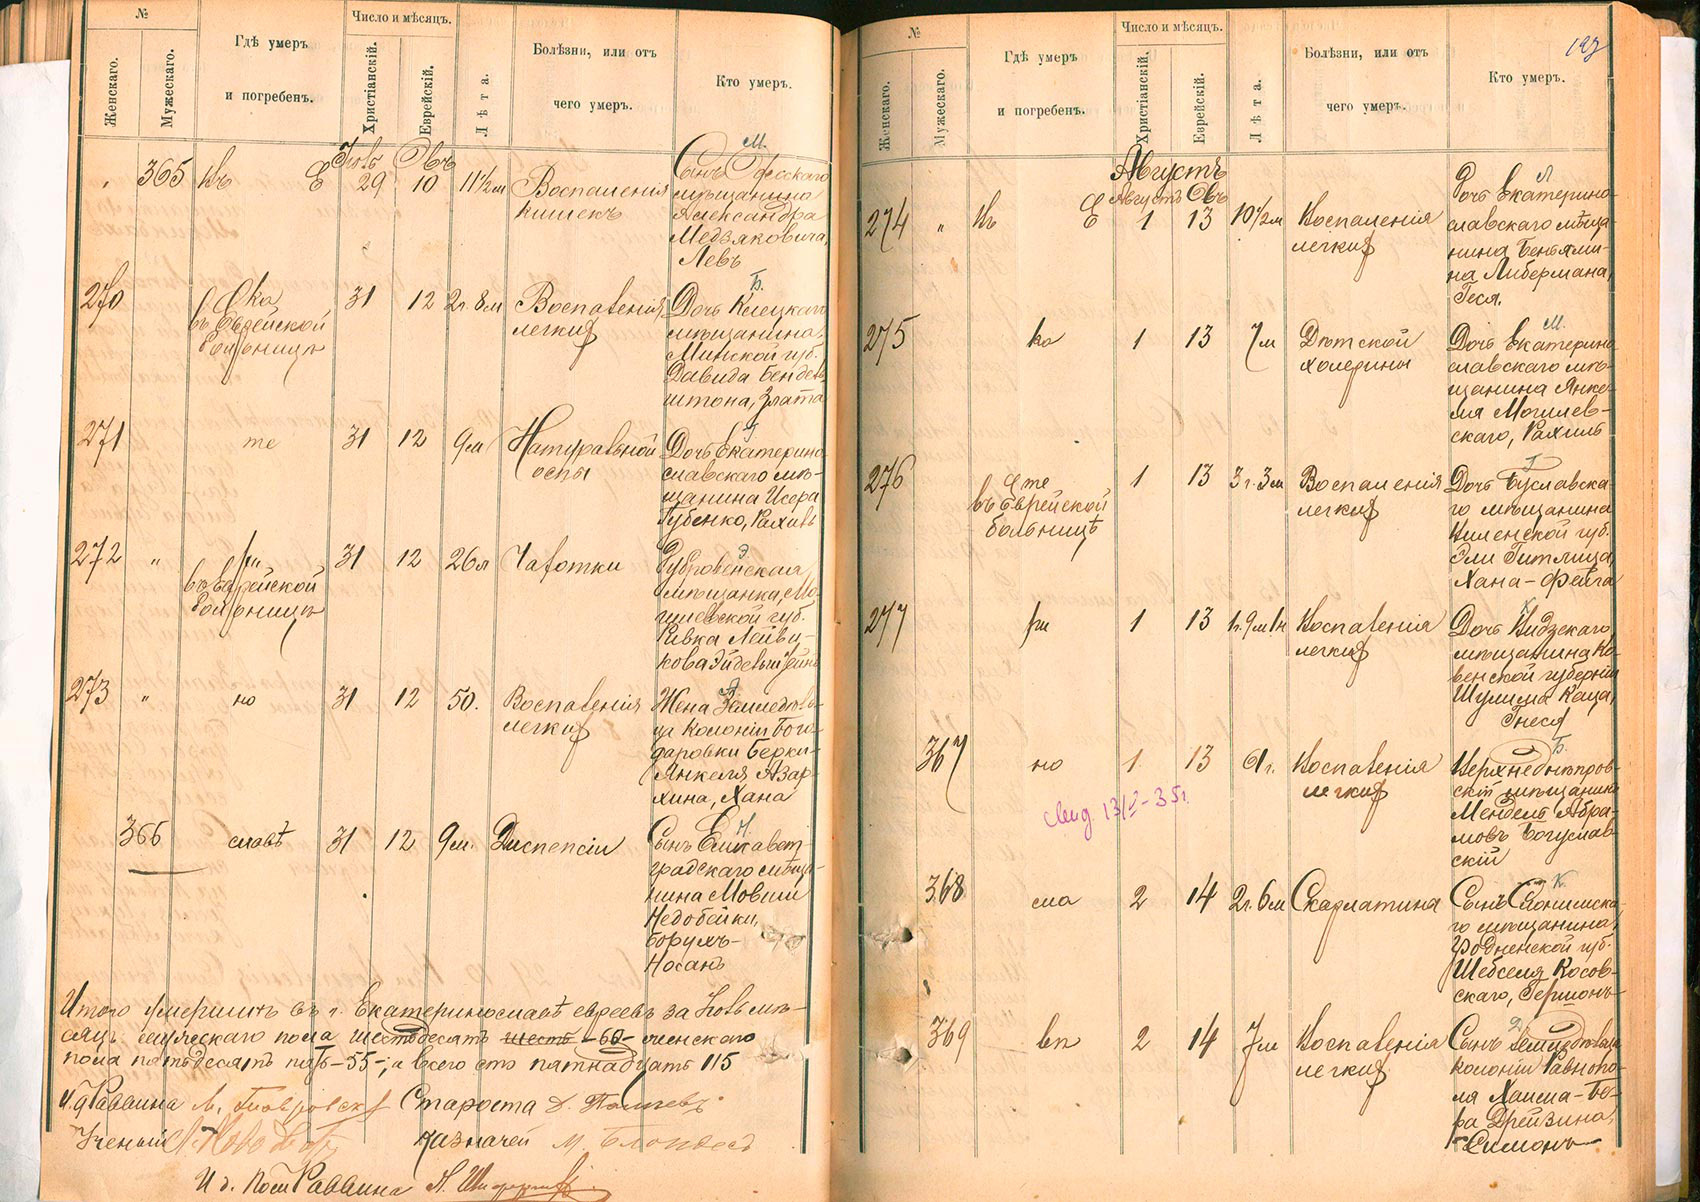 №
Женскаго.
Мужескаго.
Гдѣ умеръ
и погребенъ.
Число и мѣсяцъ.
Христіанскій.
Еврейскій.
Лѣта.
Болѣзни, или отъ
чего умеръ.
Кто умеръ.
Іюль Овъ
365 Въ Е 29 10 11½м Воспаленія
кишекъ
М.
Сынъ
мѣщанина
Александра
Медзяковича,
Левъ
270 Ека 31 12 2г. 8м Воспаленія
въ Еврейской
больницѣ
легких
Б.
Дочь Клецкаго
мѣщанина
Минской губ.
Давида Бенден-
штона, Злата
271 те 31 12 9м Натуральной
оспы
Г
Дочь Екатерино-
славскаго мѣ-
щанина Исера
Губенко, Рахиль
272 „ ри 31 12 26л Чахотки
въ Еврейской
больницѣ
Э
Дубровенская
мѣщанка, Мо-
гилевской губ.
Ривка Лейви-
кова
273 „ но 31 12 50. Воспаленія
легких
А
Жена Земледѣль-
ца колоніи Бого-
даровки Берки-
Янкеля Азар-
хина, Хана
366 славѣ 31 12 9м. Диспепсіи
Н
Сынъ Елисавет-
градскаго мѣща-
нина Мовши
Недобейки,
Борухъ-
Носанъ
Итого умершихъ въ г. Екатеринославѣ евреевъ за Іюль мѣ-
сяцъ мужескаго пола шестьдесятъ шесть -60- женскаго
пола пятьдесятъ пять -55-, а всего сто пятнадцать 115
И. д. Раввина Староста
Ученый Казначей М.
И. д. Пом. Раввина
№
Женскаго.
Мужескаго.
Гдѣ умеръ
и погребенъ.
Число и мѣсяцъ.
Христіанскій.
Еврейскій.
Лѣта.
Болѣзни, или отъ
чего умеръ.
Кто умеръ.
Августъ
Августъ Овъ
274 „ Въ Е 1 13 10½м Воспаленія
легких
Л
Дочь Екатерино-
славскаго мѣща-
нина Беньями-
на Либермана,
Геся.
275 ка 1 13 7м Дѣтской
холерины
М.
Дочь Екатерино-
славскаго мѣ-
щанина Янке-
ля Могилев-
скаго, Рахиль
276 те 1 13 3г. 3м Воспаленія
въ Еврейской
больницѣ
легких
Г
Дочь
го мѣщанина
Виленской губ.
Эли Гитлица,
Хана-Фейга
277 ри 1 13 1г. 9м Воспаленія
легких
К
Дочь Видзскаго
мѣщанина Ко-
венской губерніи
Шулима Каца,
Гнеся
367 но 1 13 Воспаленія
легких
Б.
Верхнеднѣпров-
скій мѣщанинъ
Мендель Абра-
мовъ Богуслав-
скій
368 сла 2 14 2г. 6м Скарлатина
К.
Сынъ Слонимска-
го мѣщанина
Гродненской губ.
Шебселя Косов-
скаго, Гершонъ
369 вѣ 2 14 7м Воспаленія
легких
Д
Сынъ Земледѣльца
колоніи Равнопо-
ля Хаима-Бо-
Дрейзина,
Симонъ